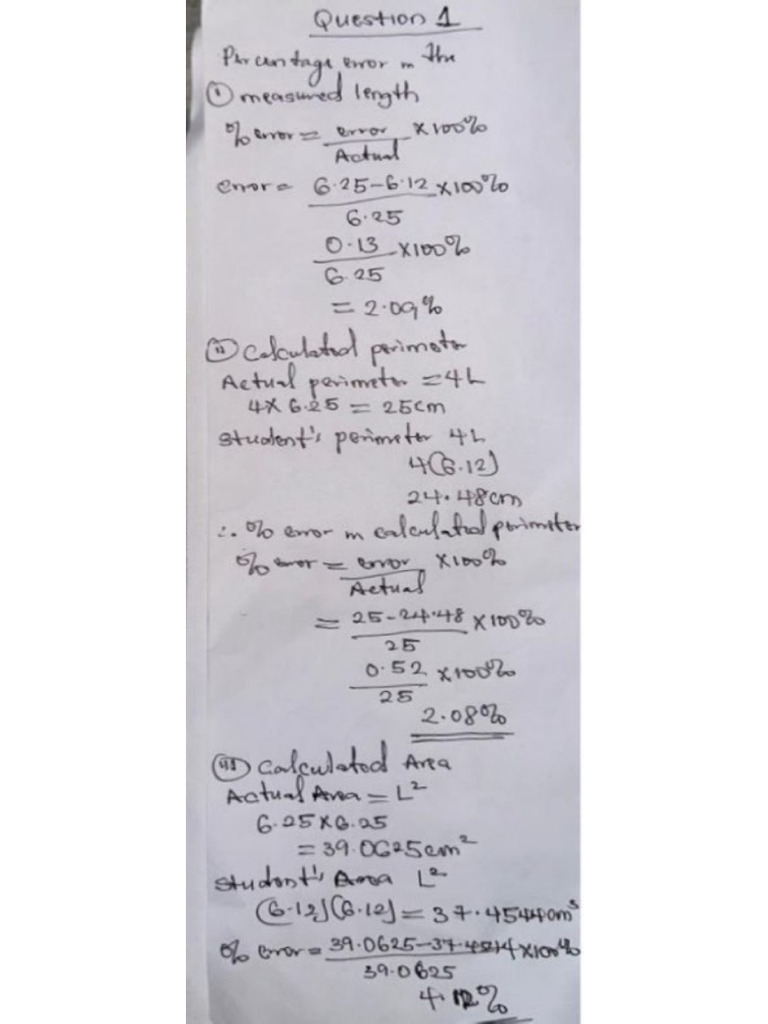 Question 1
Percentage error in the
(i) measured length
% error = error/Actual × 100%
error = 6.25-6.12/6.25 × 100%
0.13/6.25 × 100%
= 2.09%
(ii) Calculated perimeter
Actual perimeter = 4L
4 × 6.25 = 25cm
Student's perimeter 4L
4(6.12)
24.48cm
∴ % error in calculated perimeter
% error = error/Actual × 100%
= 25-24.48/25 × 100%
0.52/25 × 100%
2.08%
(iii) Calculated Area
Actual Area = L²
6.25 × 6.25
= 39.0625cm²
Student's Area L²
(6.12)(6.12) = 37.4544cm
% error = 39.0625- /39.0625 × 100%
4.12%